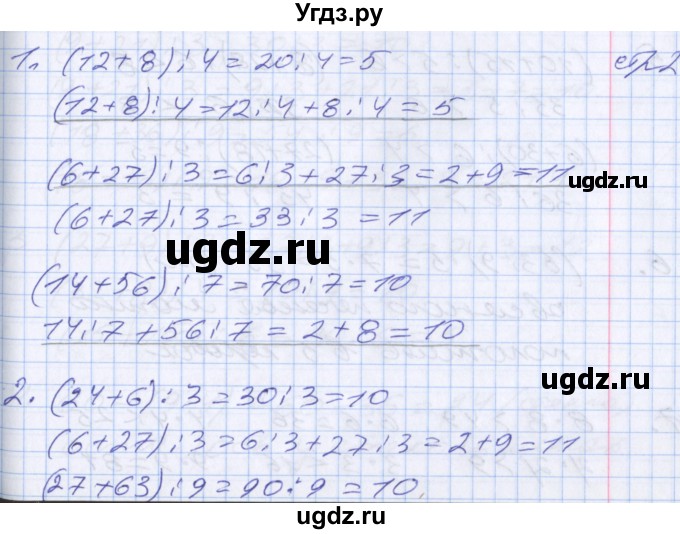 Угдз.ру
1. (12+8):4=20:4=5 стр2
(12+8):4=12:4+8:4=5
(6+27):3=6:3+27:3=2+9=11
ugdz.ru
(6+27):3=33:3=11
ugdz.ru
(14+56):7=70:7=10
14:7+56:7=2+8=10
ugdz.ru
2. (24+6):3=30:3=10
(6+27):3=6:3+27:3=2+9=11
(27+63):9=90:9=10.
ugdz.ru